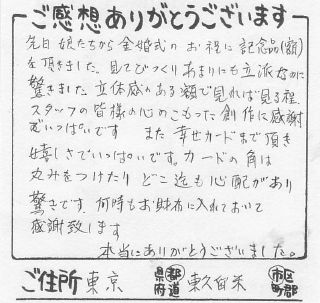 ご感想ありがとうございます
先日娘たちから金婚式のお祝に記念品(額)
を頂きました。見てびっくりあまりにも立派なのに
驚きました。立体感のある額で見れば見る程、
スタッフの皆様の心のこもった創作に感謝
でいっぱいです　また幸せカードまで頂き
嬉しさでいっぱいです。カードの角は
丸みをつけたり どこ迄も心配があり
驚きです。何時もお財布に入れておいて
感謝致します
本当にありがとうございました。
ご住所 東京 都道府県 東久留米 市区町郡